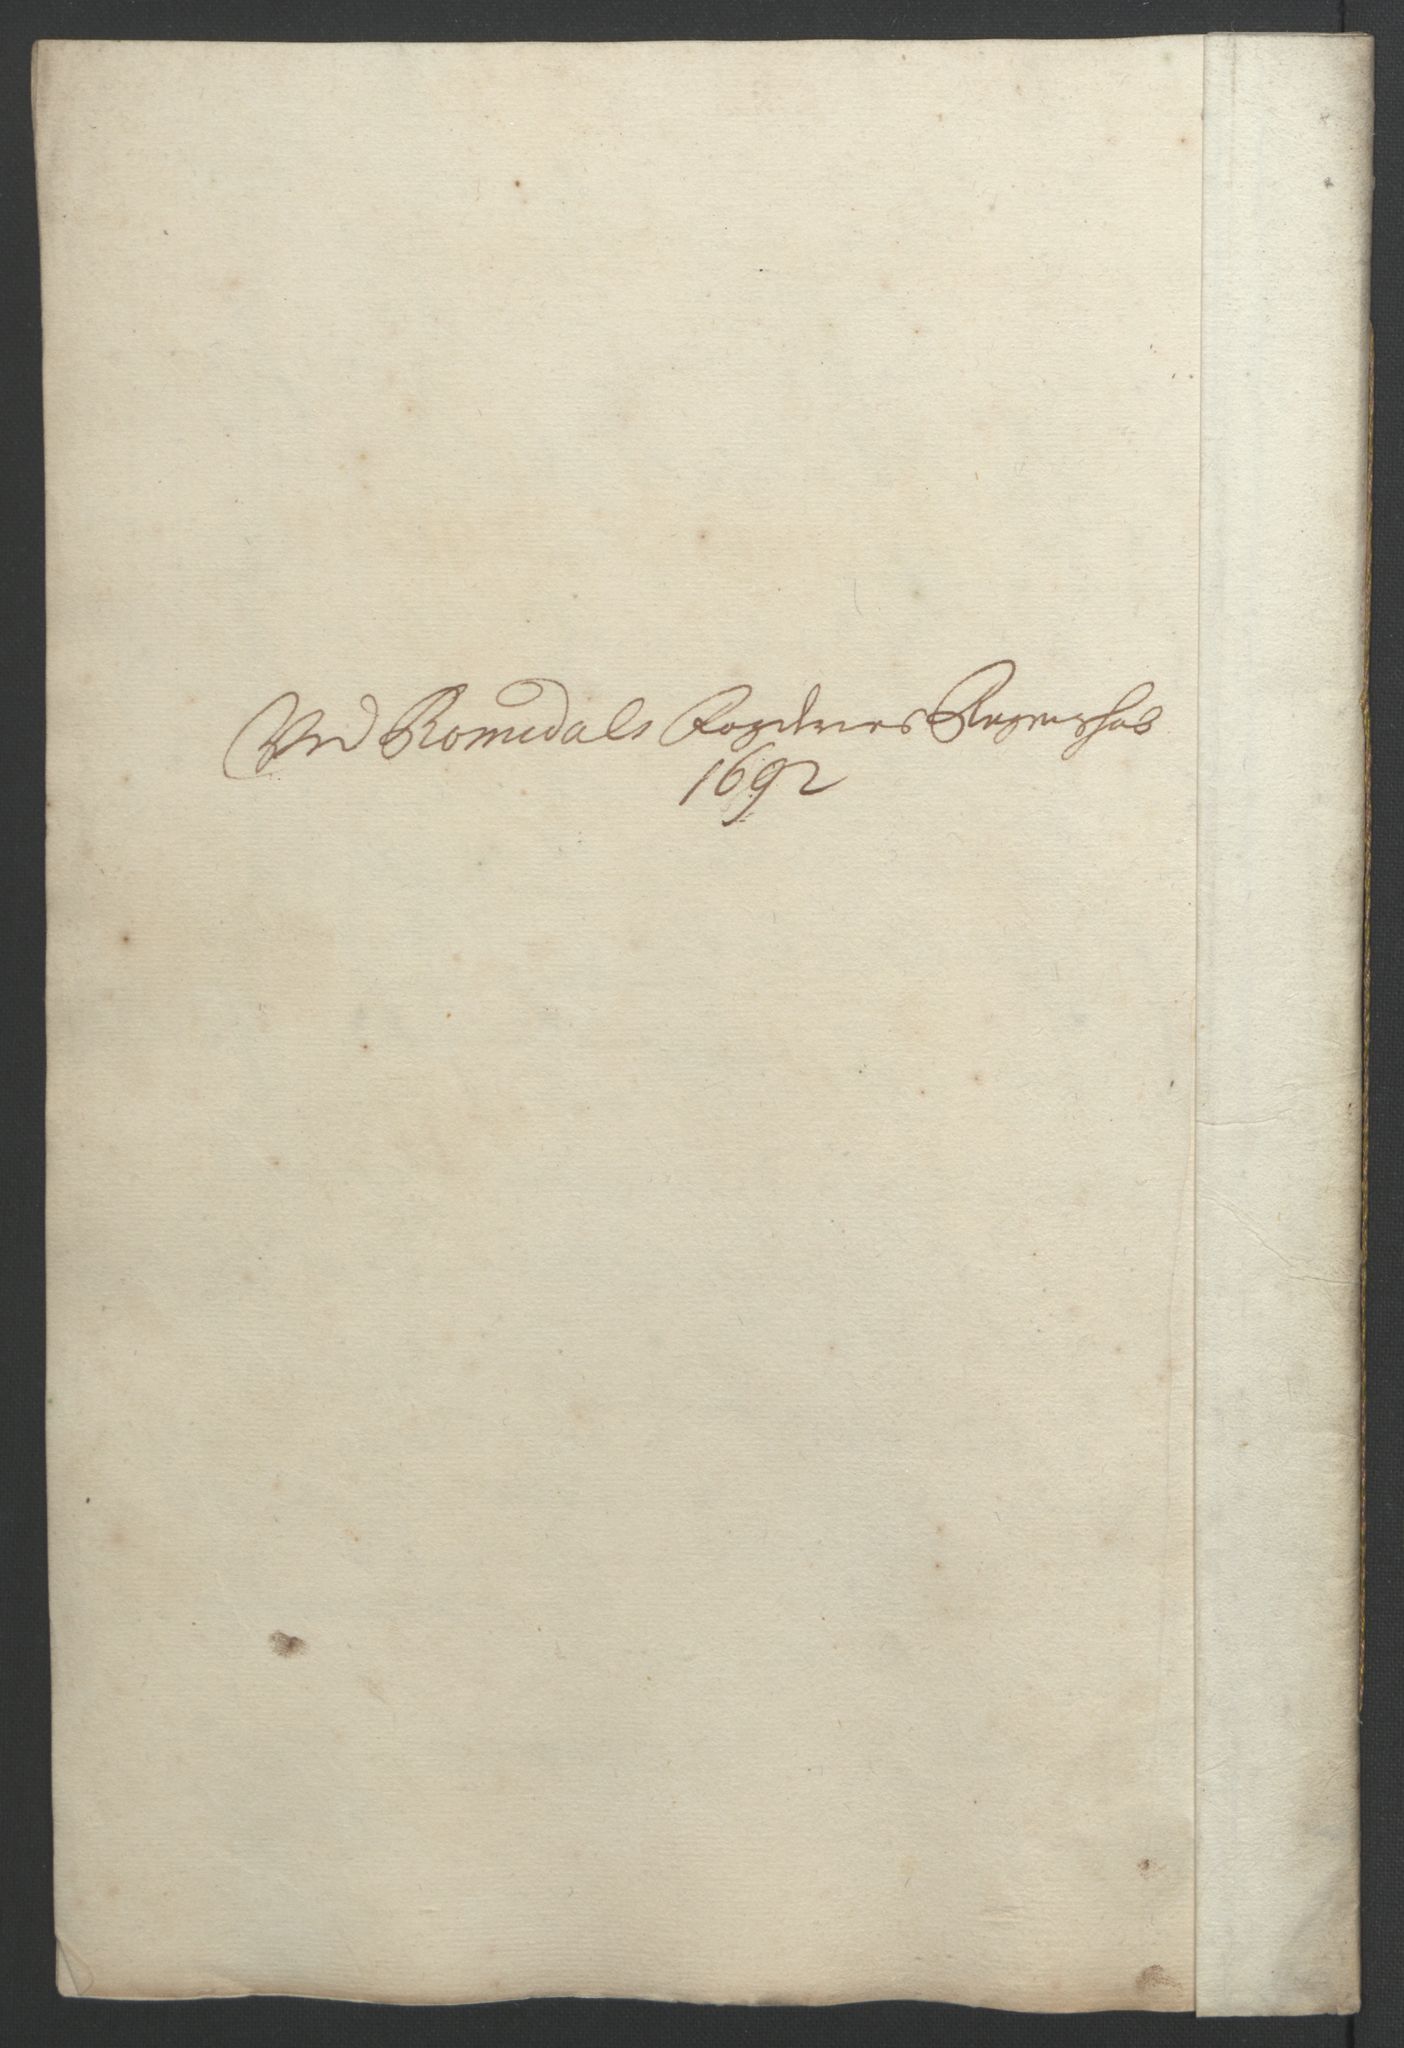 Ved Romsdals Fogderies Regenschab
1692